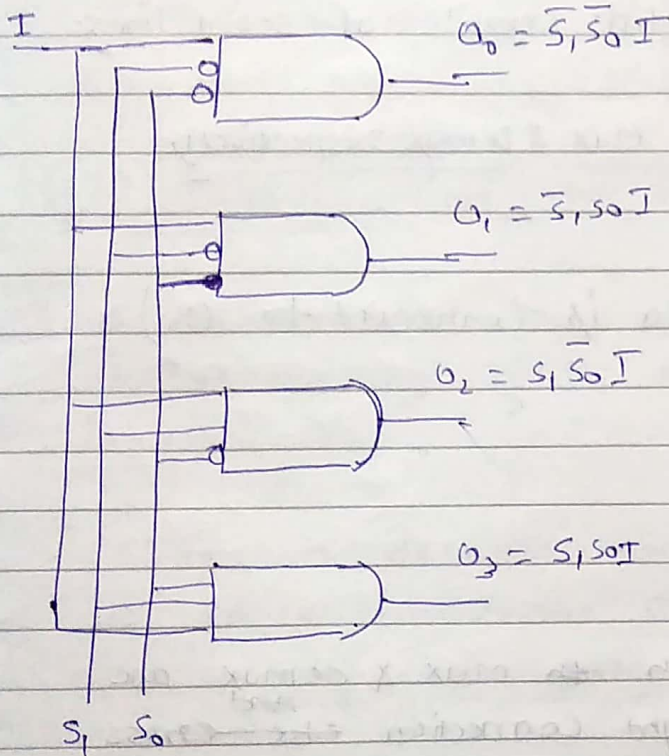 I
O₀ = S̅₁ S̅₀ I
O₁ = S̅₁ S₀ I
O₂ = S₁ S̅₀ I
O₃ = S₁ S₀ I
S₁ S₀